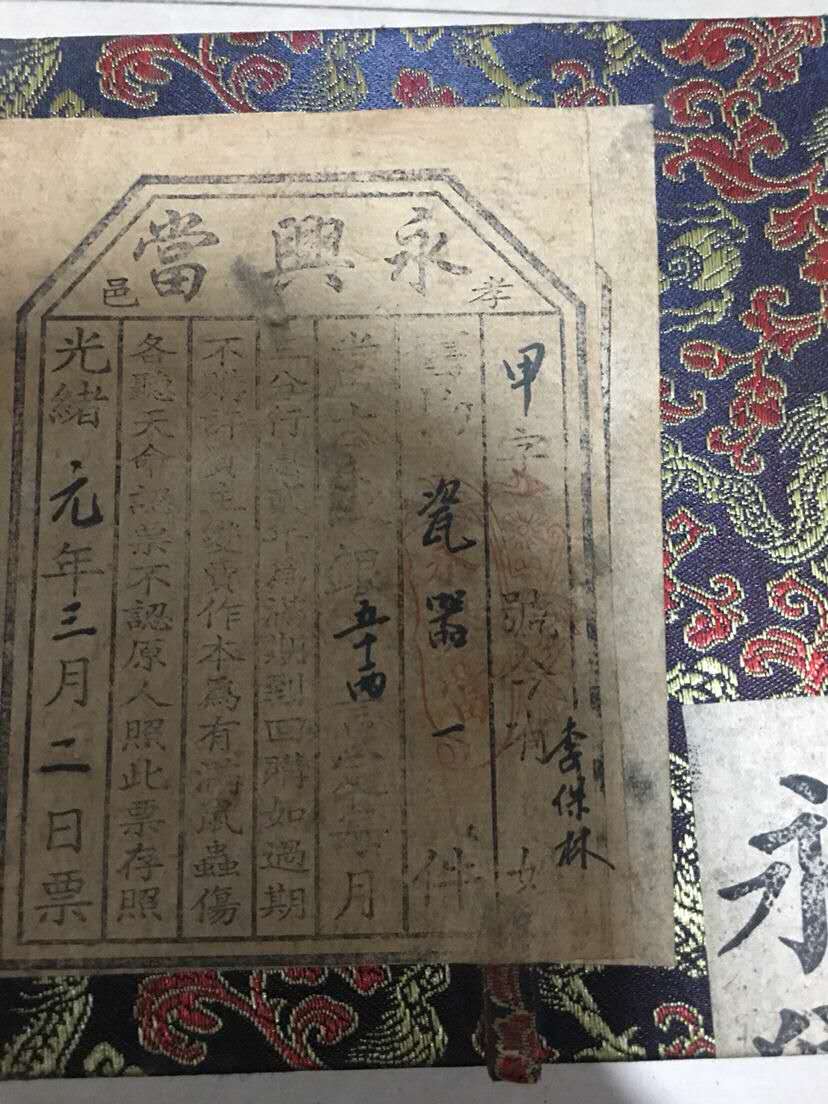 永興當
孝邑
甲字號今
李保林
瓷器一件
銀五十兩每月
三分行息年為滿期到回贖如過期
不贖許主變賣作本為有滿鼠蟲傷
各聽天命認票不認原人照此票存照
光緒元年三月二日票
永